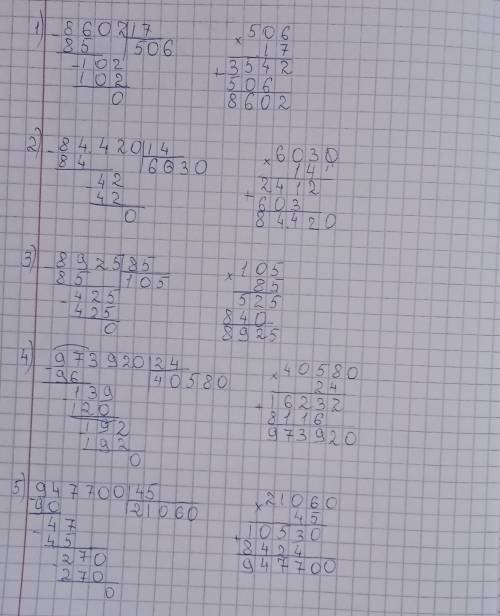 1) -8602|17 ×506
85 |506 17
-102 +3542
102 506
0 8602
2) -84420|14 ×6030
84 |6030 14
-42 +2412
42 603
0 84420
3) -8925|85 ×105
85 |105 85
-425 525
425 840
0 8925
4) -973920|24 ×40580
96 |40580 24
139 +16232
120 8116
192 973920
192
0
5) -947700|45 ×21060
90 |21060 45
-47 +10530
45 8424
-270 947700
270
0